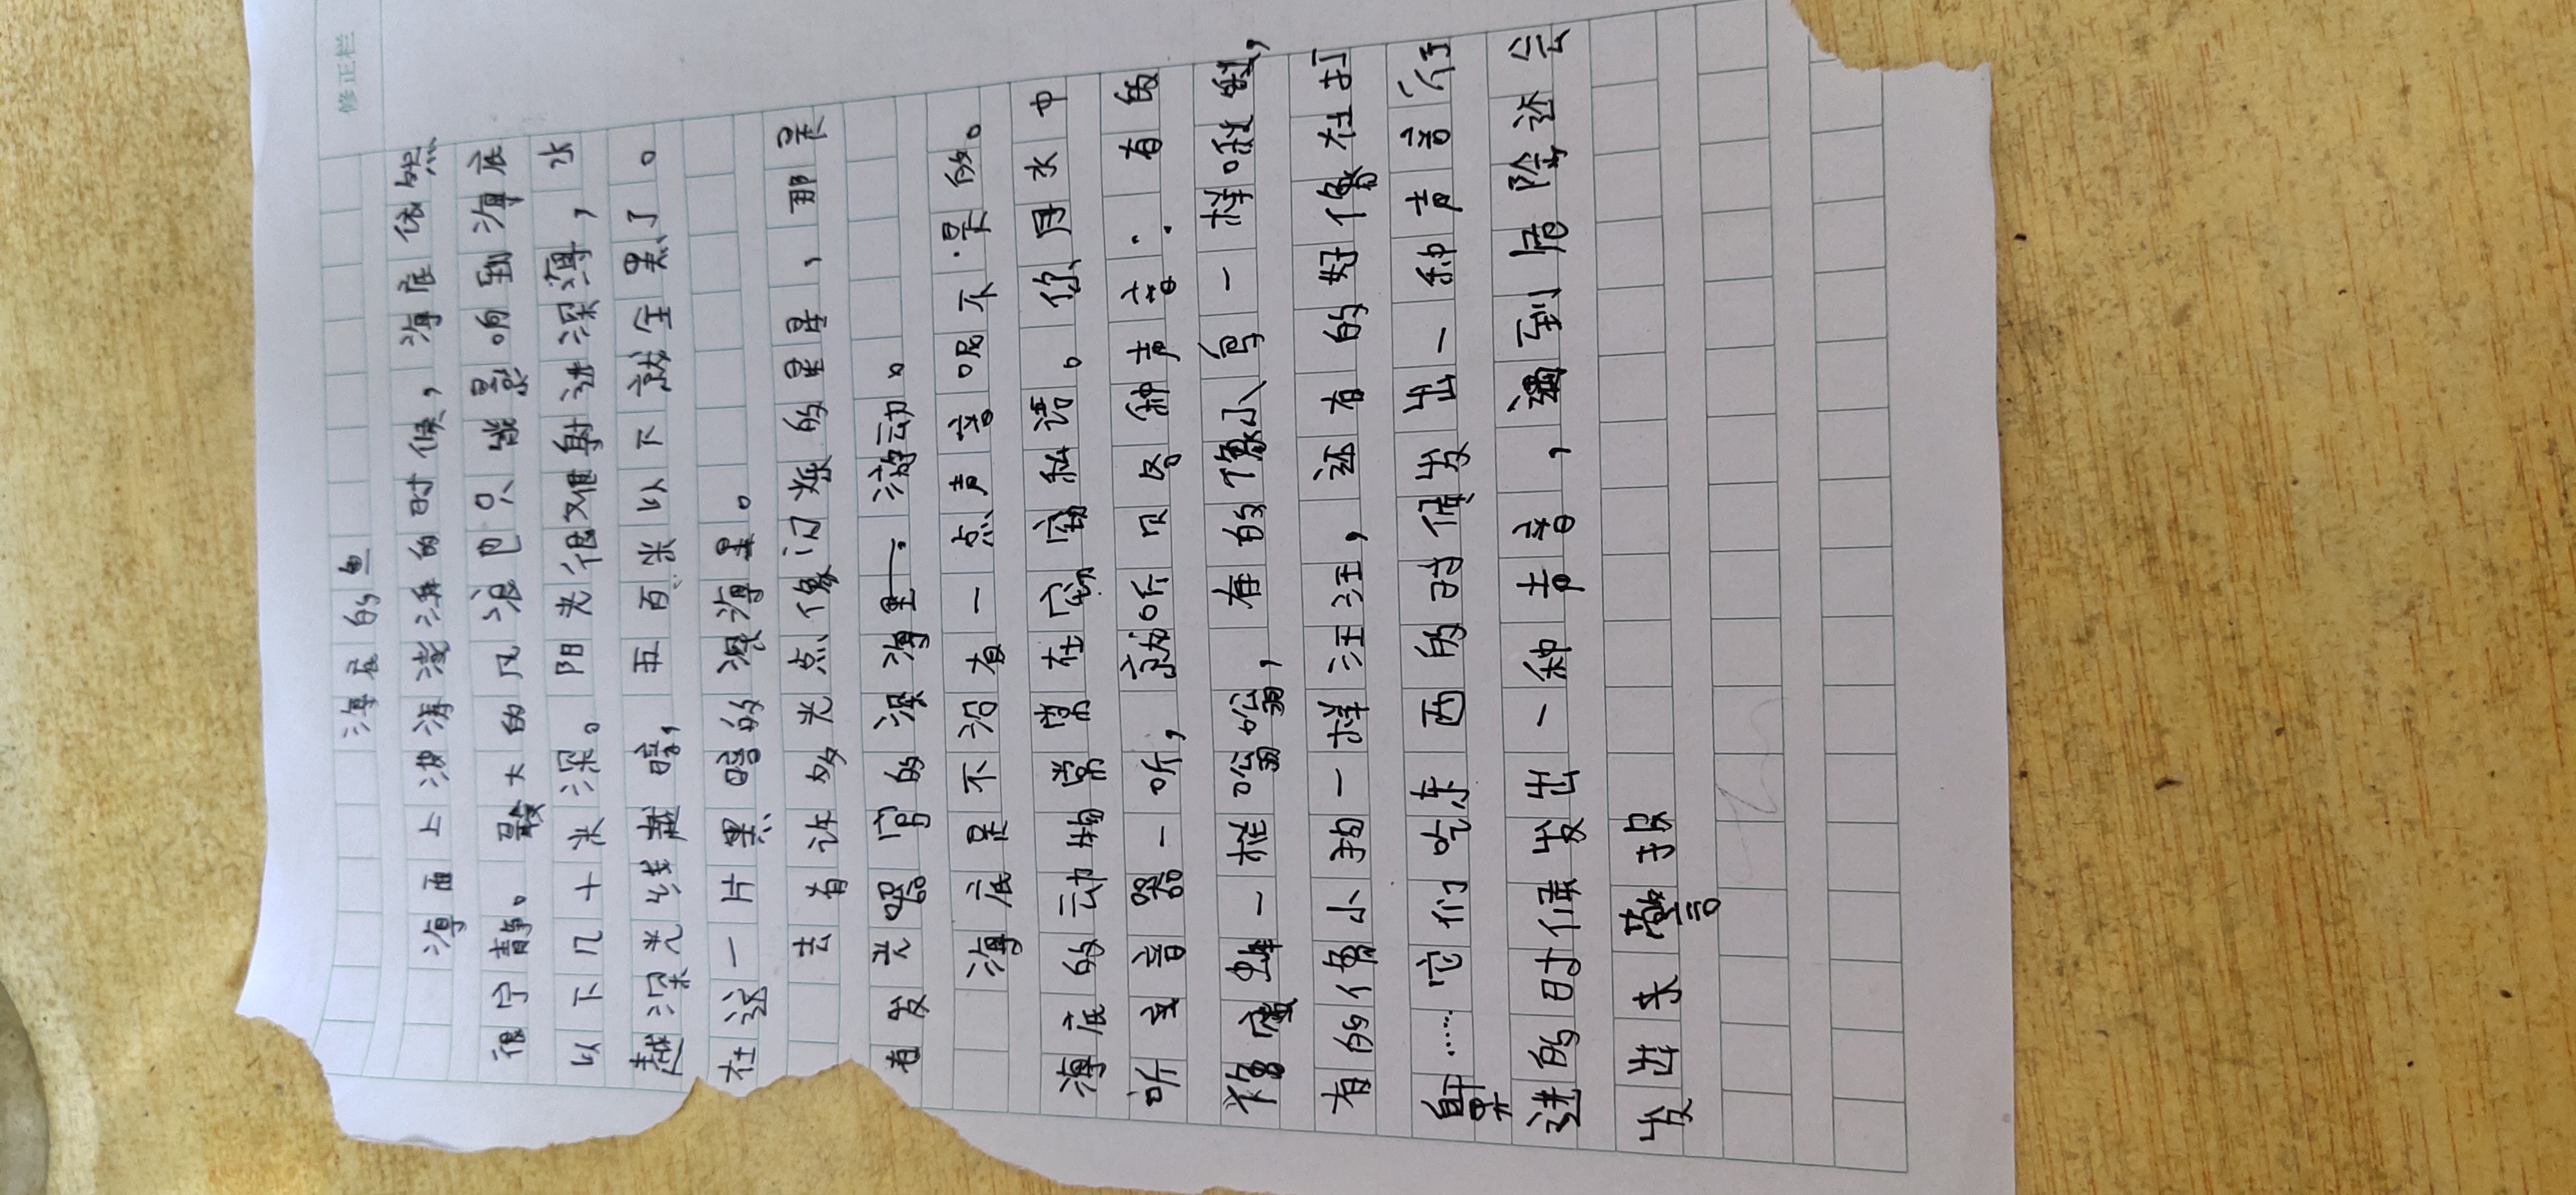 修正栏
海底的鱼
海面上波涛澎湃的时候，海底依然
很宁静。最大的风浪也只能影响到海底
以下几十米深。阳光很难射进深海，水
越深光线越暗，五百米以下就全黑了。
在这一片黑暗的深海里。
去有许多光点像闪烁的星星，那是
有发光器官的深海里一游动。
海底是不没有一点声音呢不·是的。
海底的动物常常在窃窃私语。你用水中
听音器一听，就听见各种声音：有的
像蜜蜂一样嗡嗡，有的像小鸟一样啾啾，
有的像小狗一样汪汪，还有的好像在打
鼾……它们吃东西的时候发出一种声音行
进的时候发出一种声音，遇到危险还会
发出来警报